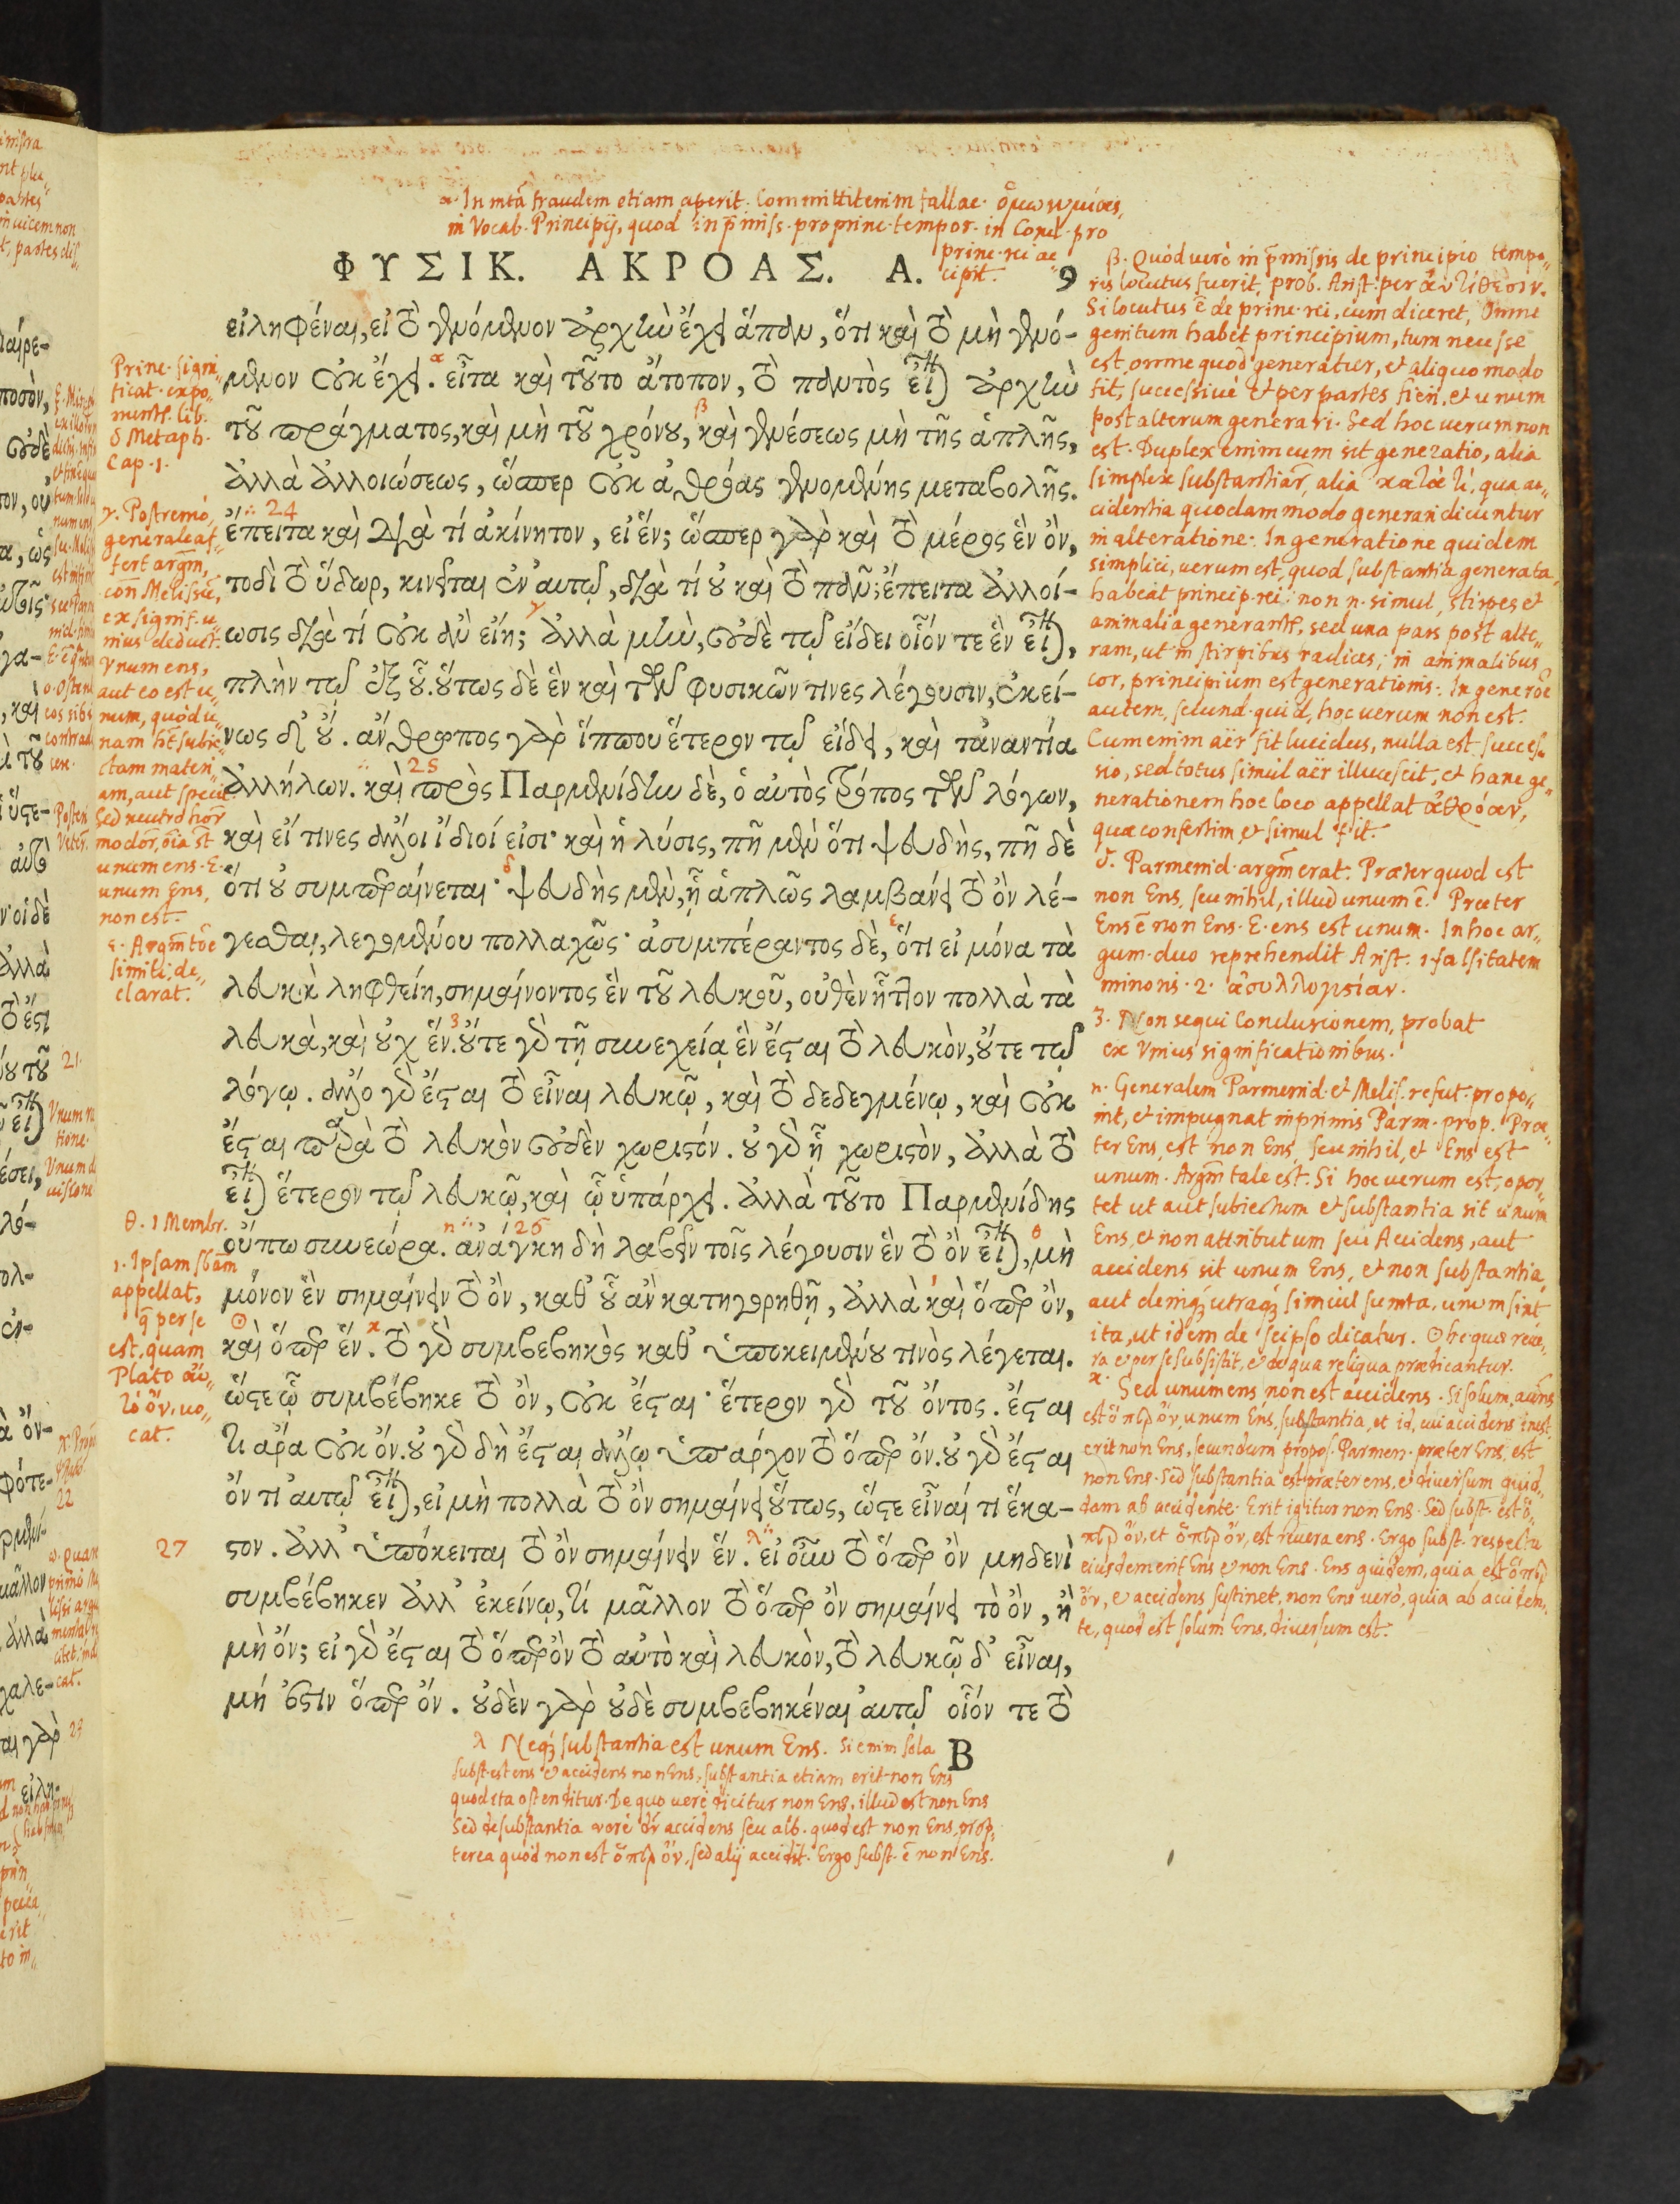 α. In mtā fraudem etiam aperit. Committit enim fallac. ὁμωνυμίας,
in Vocab. Principij, quod in p̄miss. pro princ. tempor. in Concl. pro
princ. rei ac„
cipit.
ΦΥΣΙΚ. ΑΚΡΟΑΣ. Α. 9
εἰληφέναι, εἰ τὸ γενόμενον ἀρχὴν ἔχει ἅπαν, ὅτι καὶ τὸ μὴ γενό-
μενον οὐκ ἔχει. εἶτα καὶ τοῦτο ἄτοπον, τὸ παντὸς εἶναι ἀρχὴν
τοῦ πράγματος, καὶ μὴ τοῦ χρόνου, καὶ γενέσεως μὴ τῆς ἁπλῆς,
ἀλλὰ ἀλλοιώσεως, ὥσπερ οὐκ ἀθρόας γενομένης μεταβολῆς.
ἔπειτα καὶ διὰ τί ἀκίνητον, εἰ ἕν; ὥσπερ γὰρ καὶ τὸ μέρος ἓν ὂν,
τοδὶ τὸ ὕδωρ, κινεῖται ἐν αὑτῷ, διὰ τί οὐ καὶ τὸ πᾶν; ἔπειτα ἀλλοί-
ωσις διὰ τί οὐκ ἂν εἴη; ἀλλὰ μὴν, οὐδὲ τῷ εἴδει οἷόν τε ἓν εἶναι,
πλὴν τῷ ἐξ οὗ. οὕτως δὲ ἓν καὶ τῶν φυσικῶν τινες λέγουσιν, ἐκεί-
νως δ' οὔ. ἄνθρωπος γὰρ ἵππου ἕτερον τῷ εἴδει, καὶ τἀναντία
ἀλλήλων. καὶ πρὸς Παρμενίδην δὲ, ὁ αὐτὸς τρόπος τῶν λόγων,
καὶ εἴ τινες ἄλλοι ἴδιοί εἰσι· καὶ ἡ λύσις, πῆ μὲν ὅτι ψευδὴς, πῆ δὲ
ὅτι οὐ συμπεραίνεται· ψευδὴς μὲν, ᾗ ἁπλῶς λαμβάνει τὸ ὂν λέ-
γεσθαι, λεγομένου πολλαχῶς· ἀσυμπέραντος δὲ, ὅτι εἰ μόνα τὰ
λευκὰ ληφθείη, σημαίνοντος ἓν τοῦ λευκοῦ, οὐθὲν ἧττον πολλὰ τὰ
λευκὰ, καὶ οὐχ ἕν. οὔτε γὰρ τῇ συνεχείᾳ ἓν ἔσται τὸ λευκὸν, οὔτε τῷ
λόγῳ. ἄλλο γὰρ ἔσται τὸ εἶναι λευκῷ, καὶ τὸ δεδεγμένῳ, καὶ οὐκ
ἔσται παρὰ τὸ λευκὸν οὐδὲν χωριστόν. οὐ γὰρ ᾗ χωριστὸν, ἀλλὰ τὸ
εἶναι ἕτερον τῷ λευκῷ, καὶ ᾧ ὑπάρχει. ἀλλὰ τοῦτο Παρμενίδης
οὔπω συνεώρα. ἀνάγκη δὴ λαβεῖν τοῖς λέγουσιν ἓν τὸ ὂν εἶναι, μὴ
μόνον ἓν σημαίνειν τὸ ὂν, καθ' οὗ ἂν κατηγορηθῇ, ἀλλὰ καὶ ὅπερ ὂν,
καὶ ὅπερ ἕν. τὸ γὰρ συμβεβηκὸς καθ' ὑποκειμένου τινὸς λέγεται.
ὥστε ᾧ συμβέβηκε τὸ ὂν, οὐκ ἔσται· ἕτερον γὰρ τοῦ ὄντος. ἔσται
τι ἄρα οὐκ ὄν. οὐ γὰρ δὴ ἔσται ἄλλῳ ὑπάρχον τὸ ὅπερ ὄν. οὐ γὰρ ἔσται
ὄν τι αὐτῷ εἶναι, εἰ μὴ πολλὰ τὸ ὂν σημαίνει οὕτως, ὥστε εἶναί τι ἕκα-
στον. ἀλλ' ὑπόκειται τὸ ὂν σημαίνειν ἕν. εἰ οὖν τὸ ὅπερ ὂν μηδενὶ
συμβέβηκεν ἀλλ' ἐκείνῳ, τί μᾶλλον τὸ ὅπερ ὂν σημαίνει τὸ ὂν, ἢ
μὴ ὄν; εἰ γὰρ ἔσται τὸ ὅπερ ὂν τὸ αὐτὸ καὶ λευκὸν, τὸ λευκῷ δ' εἶναι,
μή ἐστιν ὅπερ ὄν. οὐδὲν γὰρ οὐδὲ συμβεβηκέναι αὐτῷ οἷόν τε τὸ
B
Princ. signi„
ficat. expo„
nuntr. lib.
δ Metaph.
cap. 1.
γ. Postremò,
generale af„
fert argm̄,
con Melissū,
ex signif. u„
nius deduct.
Vnum ens,
aut eo est u„
num, quòd u„
nam ht subie„
ctam materi„
am, aut specie
Sed neutro hor̄
modor̄, oīa st
unum ens. E.
unum Ens,
non est.
ε. Argm̄ toē
simili, de„
clarat.
24
25
26
27
θ. 1 Membr.
ι. Ipsam sbām
appellat,
q̄ per se
est, quam
Plato αὐ„
τὸ ὄν, uo„
cat.
β. Quòd verò in p̄missis de principio tempo„
ris locutus fuerit, prob. Arist. per ἀντίθεσιν.
Si locutus ē de princ. rei, cum diceret, Omne
genitum habet principium, tum necesse
est, omne quod generatur, et aliquo modo
fit, successivè et per partes fieri, et unum
post alterum generari. Sed hoc verum non
est. Duplex enim cum sit generatio, alia
simplex substantiar̄, alia κατά τι, qua ac„
cidentia quodammodo generari dicuntur
in alteratione. In generatione quidem
simplici, uerum est, quod substantia generata,
habeat princip. rei: non n. simul, stirpes et
animalia generantr, sed una pars post alte„
ram, ut in stirpibus radices, in animalibus
cor, principium est generationis. In generōe
autem, secund. quid, hoc uerum non est.
Cum enim aër fit lucidus, nulla est succes„
sio, sed totus simul aër illucescit, et hanc ge„
nerationem hoc loco appellat ἀθρόαν,
quae confestim et simul fit.
δ. Parmenid. argm̄ erat. Praeter quod est
non Ens, seu nihil, illud unum ē. Praeter
Ens ē non Ens. E. ens est unum. In hoc ar„
gum. duo reprehendit Arist. 1. falsitatem
minoris. 2. ἀσυλλογισίαν.
ζ. Non sequi Conclusionem, probat
ex Vnius significationibus.
η. Generalem Parmenid. et Melis. refut. propo„
nit, et impugnat inprimis Parm. prop. Prae„
ter Ens, est non Ens, seu nihil, et Ens est
unum. Argm̄ tale est. Si hoc uerum est, opor„
tet ut aut subiectum et substantia sit unum
Ens, et non attributum seu Accidens, aut
accidens sit unum Ens, et non substantia,
aut deniq; utraq; simul sumta, unum sint
ita, ut idem de seipso dicatur. ☉ hc quae reue„
ra et per se subsistit, et de qua reliqua praedicantur.
κ. Sed unum ens non est accidens. Si solum accns
est ὅπερ ὄν, unum Ens, substantia, et id, cui accidens inest,
erit non Ens, secundum propos. Parmen. praeter Ens, est
non Ens. Sed substantia est praeter ens, et diversum quid„
dam ab accidente. Erit igitur non Ens. Sed subst. est ὅ„
περ ὄν, et ὅπερ ὄν, est revera ens. Ergo subst. respectu
eiusdem erit Ens et non Ens. Ens quidem, quia est ὅπερ
ὄν, et accidens sustinet, non Ens vero, quia ab acciden„
te, quod est solum Ens, diversum est.
λ Neq; substantia est unum Ens. Si enim sola
subst. est ens et accidens non Ens, substantia etiam erit non Ens
quod ita ostenditur. De quo uere dicitur non Ens, illud est non Ens
Sed de substantia vere dr accidens seu alb. quod est non Ens, prop„
terea quòd non est ὅπερ ὄν, sed alij accidit. Ergo subst. ē non Ens.